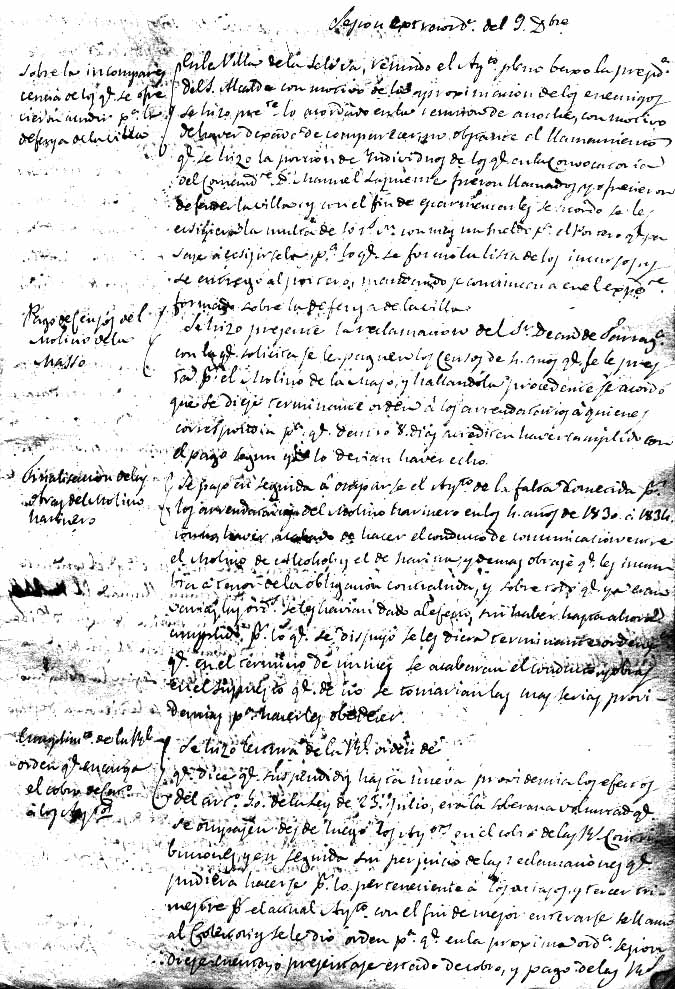 Sesion extraordª. del 9. Dbre
Sobre la incompare
cencia de los qª. se ofre
cieron acudir pª. la
defensa de la Villa
En la Villa de la Selva, reunido el Aytº. pleno baxo la presidª.
del S. Alcalde con motivo de la aproximacion de los enemigos
se hizo preste. lo acordado en la reunion de anoche, con motivo
de haver dexado de comparecer no obstante el llamamiento
qe. se hizo la porcion de Individuos de los qe. en la Convocatoria
del Comandte. D. Manuel fueron llamados y ofrecieron
defender la villa; y con el fin de escarmentarles se acordo se les
exigiera la multa de con mas un sueldo pr. el Porcero qe. pa
sase a exigirsela, pª. lo qe. se formó la lista de los incursos, y
se entregó al porcero, mandando se continuara en el expte.
formado sobre la defensa de la villa.
Pago de Censos del
Molino de la
Masso
Se hizo presente la reclamacion del Sr. Dean de Tarragª.
con la qe. solicita se le paguen los Censos de 4. años qe. se le pres
tan pr. el Molino de la Maso, y hallandola procedente se acordó
que se diese terminante orden á los arrendatarios á quienes
correspondia pª. qe. dentro 8. dias acrediten haver cumplido con
el pago segun qe. lo devian haver echo.
Finalisacion de las
obras del Molino
harinero
Se pasó en seguida á ocuparse el Aytº. de la falta cometida pr.
los arrendatarios del Molino harinero en los 4. años de 1830. á 1834.
de hacer el conducto de comunicacion entre
el Molino de Alcohol y el de harina, y demas obrage qe. les incum
bia á tenor de la obligacion contrahida, y sobre todo qe. ya eran
varias las ords. se les havian dado al efecto, sin haber hasta ahora
cumplido pr. lo qe. se dispuso se les diera terminante orden
qe. en el termino de un mes se acabaran el conducto y obras
en el supuesto qe. de no se tomarian las mas serias provi
dencias pª. hacerles obedecer.
Cumplimto. de la Rl.
orden qe. encarga
el cobro de
á los Aytos.
Se hizo lectura de la Rl. orden de
qe. dice qe. suspendidos hasta nueva providencia los efectos
del artº. 50. de la Ley de 23. Julio, era la soberana voluntad qe.
se ocupasen desde luego los Aytos. en el cobro de las Rs. Contri
buciones, y en seguida sin perjuicio de las reclamaciones qe.
pudiera hacerse pr. lo perteneciente á los atrasos, y tercer tri
mestre pr. el actual Aytº. con el fin de mejor enterarse se llamó
al Colector y se le dió orden pª. qe. en la proxima ordª. sesion
diese cuentas, ó presentase estado de cobro, y pago de las Rs.